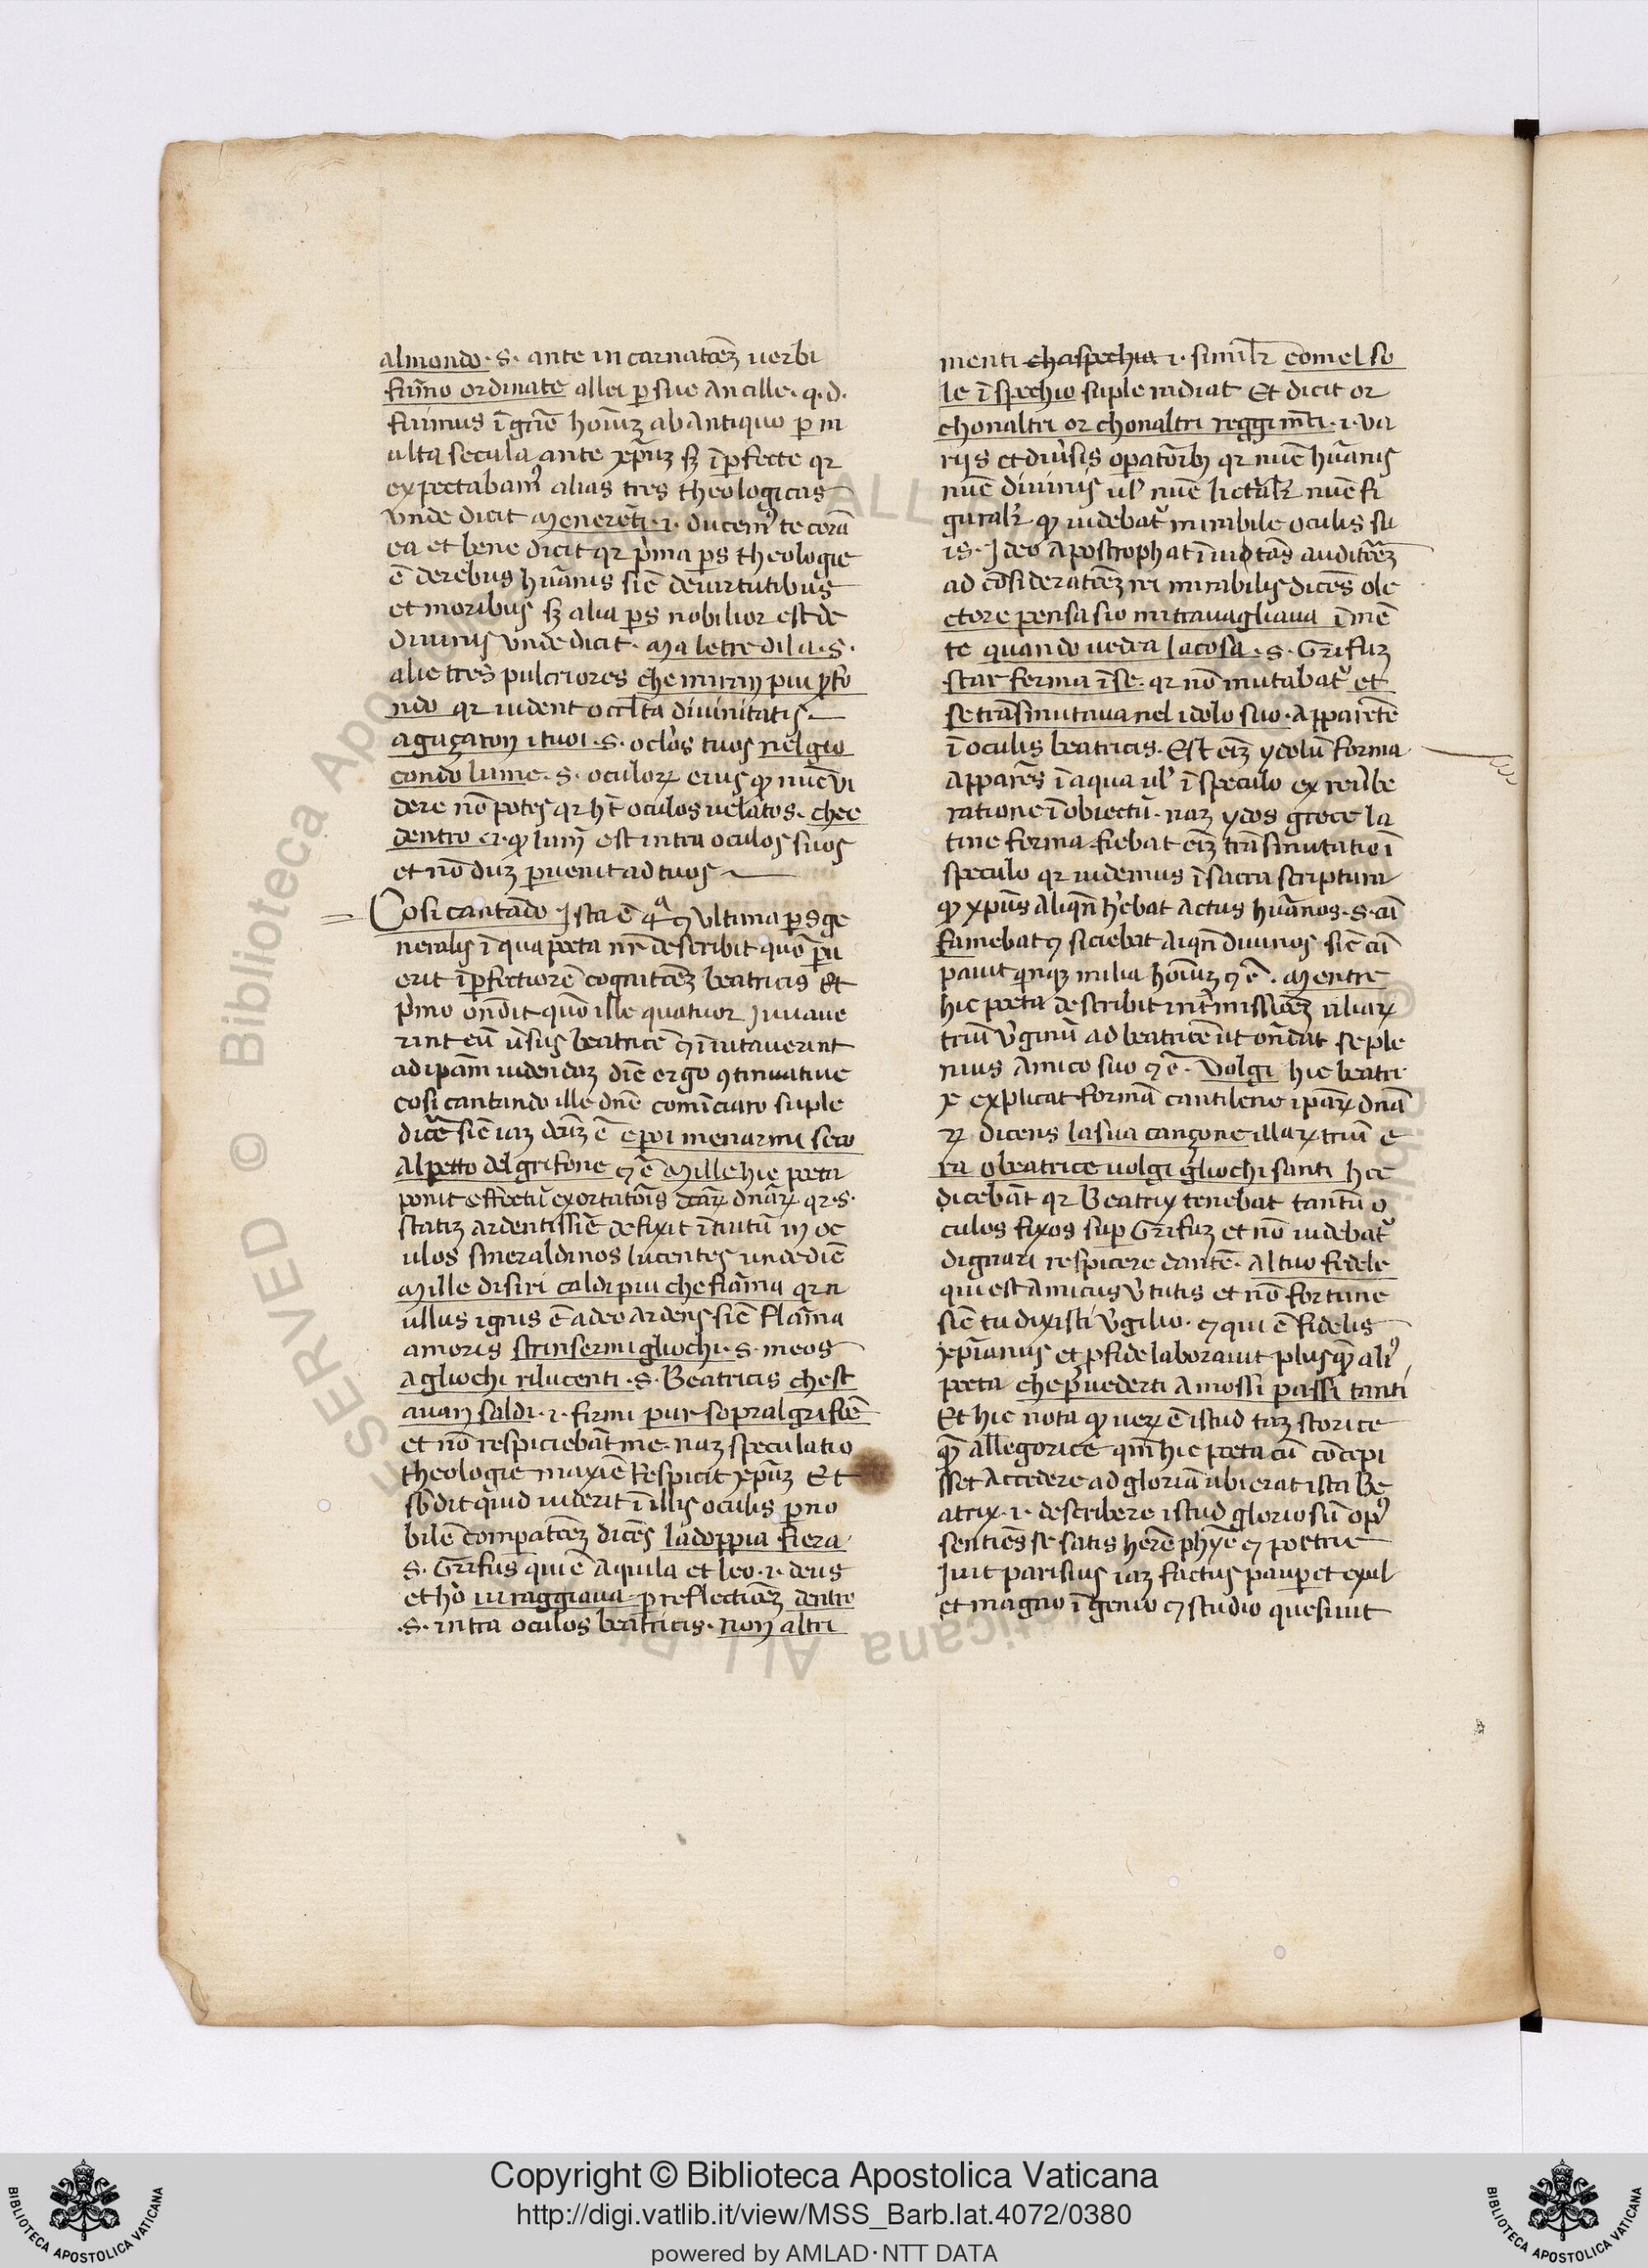 almondo · s · ante incarnatōeꝫ uerbi
fūmo ordinate allei ꝑ sue ancille · q · d ·
fuimus ī gn̄e hoīuꝫ ab antiquo ꝑ m
ulta secula ante xp̄uꝫ sꝫ īꝑfecte qr
expectabamꝰ alias tres theologicas
vnde dicit Menerēti · i · ducemꝰ te corā
ea et bene dicit qr pͥma ꝑs theologie
ē de rebus hūanis sic̄ de uirtutibus
et moribus sꝫ alia ꝑs nobilior est de
diuinis vnde dicit · Ma le tre di la · s ·
alie tres pulcriores che miran piu ꝓfo
ndo qr uident occl̄ta diuinitatis
aguçaron i tuoi · s · oclo̓s tuos nel gio
condo lume · s · oculoꝝ eius qꝙ nūc vi
dere nō potes qr hn̄t oculos uelatos · che e
dentro qꝙ lum̄ est intra oculos suos
et nō duꝫ ꝑuenit ad tuos
Cosi cantādo Ista ē 4ᵃ ⁊ vltima ꝑs ge
neralis ī qua poeta nr̄ describit quō ꝑu
erit ī ꝑfectiorē cognitōeꝫ beatricis Et
pͥmo on̄dit quō ille quatuor Iuuaue
rint eū uͤsus beatricē ⁊ īuitauerint
ad ip̄am uidendaꝫ dic̄ ergo ꝯtinuatiue
cosi cantando ille dn̄e comīciaro suple
dice̓ sic̄ iaꝫ dc̄uꝫ ē e poi menarmi seco
al petto del grifone ⁊ c̄ Mille hic poeta
ponit effectū exortatōis dc̄aꝝ dn̄aꝝ qr · s ·
statiꝫ ardentissīe defixit ītuitū in oc
ulos smeraldinos lucentes unde dic̄
Mille disiri caldi piu che fiāma qr n
ullus ignis ē adeo ardens sic̄ flāma
amoris strinsermi gliochi · s · meos
a gliochi rilucenti · s · Beatricis che st
auan saldi · i · firmi pur sopral grifōe
et nō respiciebāt me · naꝫ speculatio
theologie maxīe respicit xp̄uꝫ Et
sb̄dit quid uiderit ī illis oculis ꝑ no
bilē compatōeꝫ dicēs la doppia fiera
S · Grifus qui ē Aquila et leo · i · deus
et hō ui raggiaua ꝑ reflectiōeꝫ dentro
· s · intra oculos beatricis · non altri
menti cha spechio · i · simil̓r come l so
le ī spechio suple radiat Et dicit or
chonaltri or chonaltri reggimēti · i · va
rijs et diuͤsis oꝑatōibꝫ qr nūc hūanis
nūc diuinis ul̓ nūc lictāl̓r nūc fi
gural̓r qꝙ uidebatͬ mirabile oculis su
is · Ideo apostrophat ī uitās auditōeꝫ
ad cōsideratōeꝫ rei mirabilis dicēs o le
ctore pensa sio mi trauagliaua ī mē
te quando uedea la cosa · s · Grifuꝫ
star ferma ī se · qr nō mutabatͬ et
se trāsmutaua nel idolo suo · apparētē
ī oculis beatricis · Est eīꝫ ydolū forma
apparēs ī aqua ul̓ ī speculo ex reuͤbe
ratione ī obiectū · naꝫ ydos grece la
tine forma · fiebat eīꝫ trāsmutatio ī
speculo qr uidemus ī sacra scriptura
qꝙ xp̄us aliqn̄ hēbat actus hūanos · s · cū
famebat ⁊ siciebat aiqn̄ diuinos sic̄ cū
pauit quinqꝫ milia hoīuꝫ ⁊ c̄ · Mentre
hic poeta describit int̄missiōeꝫ aliaꝝ
triū vͥginū ad beatricē ut on̄dat se ple
nius amico suo ⁊ c̄ · Volgi hic beatri
x explicat formā cantilene ip̄aꝝ dnā
ꝝ dicens la sua cançone illaꝝ triū e
ra o beatrice uolgi gliochi santi hec
dicebāt qr Beatrix tenebat tantū o
culos fixos suꝑ Grifuꝫ et nō uidebatͬ
dignari respicere dantē · al tuo fedele
qui est amicus vͥtutis et nō fortune
sic̄ tu dixisti vͥgilio · ⁊ qui ē fidelis
xp̄ianus et ꝑ fide laborauit plusqꝫ aliꝰ
poeta che ꝑ uederti a mossi passi tanti
Et hic nota qꝙ ueꝝ ē istud taꝫ storice
qꝫ allegorice qm̄ hic poeta cū cōcepi
sset accedere ad gloriā ubi erat ista Be
atrix · i · describere istud gloriosū opꝰ
sentiēs se satis hērē phye ⁊ poetrie
Iuit parisius iaꝫ factus pauꝑ et exul
et magno īgenio ⁊ studio quesiuit
Copyright © Biblioteca Apostolica Vaticana
http://digi.vatlib.it/view/MSS_Barb.lat.4072/0380
powered by AMLAD·NTT DATA
BIBLIOTECA APOSTOLICA VATICANA
BIBLIOTECA APOSTOLICA VATICANA